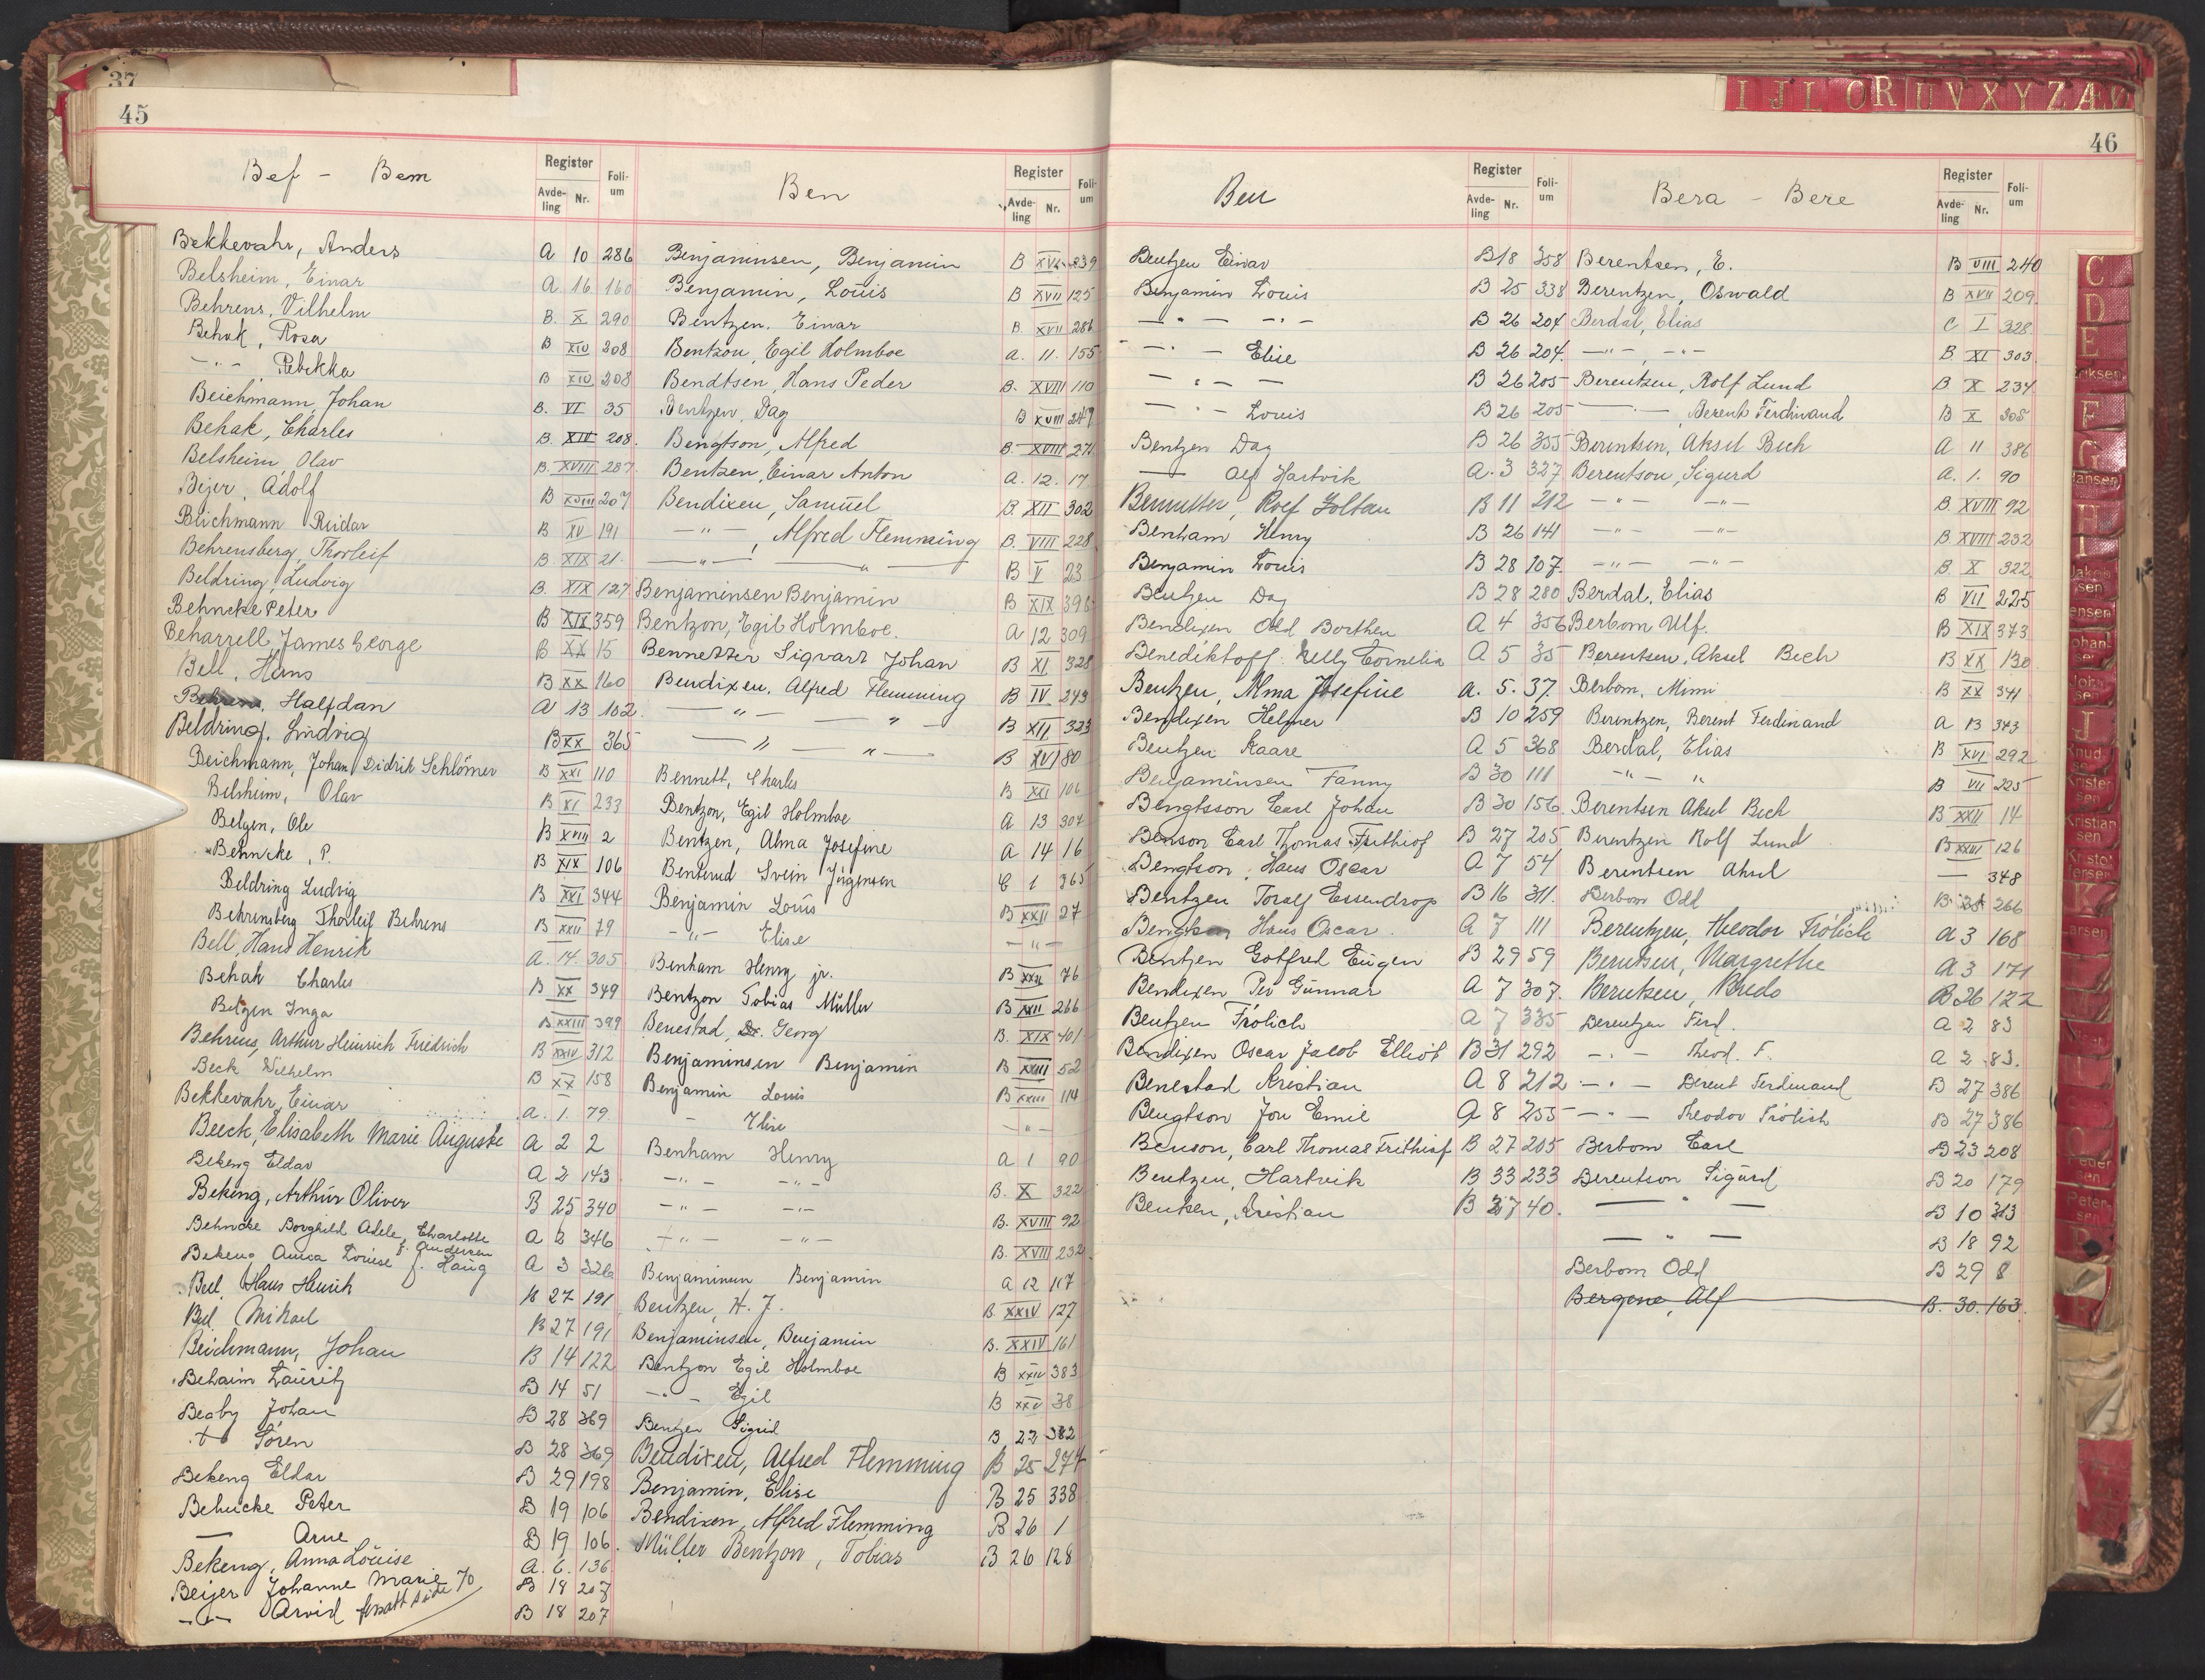 37
45
Bef - Bem
Register
Avde-ling Nr. Foli-um
Bekkevahr, Anders A 10 286
Belsheim, Einar A. 16. 160
Behrens, Vilhelm B. X 290
Behak, Rosa B XIV 208
—"— Rebekka B XIV 208
Beichmann, Johan B. VI 35
Behak, Charles B. XIV 208.
Belsheim, Olav B. XVIII 287.
Bejer, Adolf B XVIII 207
Beichmann Reidar B XV 191
Behrensberg, Thorleif B. XIX 21.
Beldring, Ludvig B. XIX 127
Behncke Peter B XIX 359
Beharrell, James George B XX 15
Bell, Hans B XX 160
Halfdan A 13 102.
Beldring, Ludvig B XX 365
Beichmann, Johan Didrik Schlömer B XXI 110
Belsheim, Olav B XI 233
Belgen, Ole B XVIII 2
Behncke, P. B XIX 106
Beldring Ludvig B XXI 344
Behrensberg Thorleif Behrens B XXII 79
Bell, Hans Henrik A. 14. 305
Behak Charles B XX 349
Belgen Inga B XXIII 399
Behrens, Arthur Heinrich Friedrich B XXIV 312
Beck Wilhelm B XX 158
Bekkevahr, Einar A. 1. 79.
Beeck, Elisabeth Marie Auguste A 2 2
Bekeng Eldar A 2 143
Bekeng, Arthur Oliver B 25 340
Behncke Borghild Adele, Charlotte f. Andersen A 2 346
Bekeng Anna Louise f. Haug A 3 326
Bell, Hans Henrik B 27 191
Bell, Mikael B 27 191
Beichmann, Johan B 14 122
Behaim Lauritz B 14 51
Beaby Johan B 28 369
Sören B 28 369
Bekeng Eldar B 29 198
Behncke Peter B 19 106
— Arne B 19 106.
Bekeng, Anna Louise A. 6. 136
Beijer Johanne Marie B 18 207
—"— Arvid fortsatt side 70 B 18 207
Ben
Register
Avde-ling Nr. Foli-um
Benjaminsen, Benjamin B XVI 239
Benjamin, Louis B XVII 125
Bentzen, Einar B. XVII 286
Bentzon, Egil Holmboe A. 11. 155
Bendtsen, Hans Peder B. XVIII 110
Bentzen, Dag B XVIII 249
Bengtson, Alfred B. XVIII 271
Bentzen, Einar Anton A. 12. 17
Bendixen, Samuel B. XII 302
—"—, Alfred Flemming B. VIII 228
—"— —"— B V 23
Benjaminsen Benjamin B XIX 398
Bentzon, Egil Holmboe. A 12 309
Bennetter Sigvart Johan B XI 328
Bendixen, Alfred Flemming B IV 243
—"— —"— B XII 323
—"— —"— B XVI 80
Bennett, Charles B XXI 106
Bentzon, Egil Holmboe A 13 304
Bentzen, Alma Josefine A 14 16
Benterud Svein Jörgensen C 1 365
Benjamin Louis B XXII 27
—"— Elise —"—
Benham Henry jr. B XXII 76
Bentzon Tobias Müller B XXII 266
Benestad, Dr. Georg B. XIX 401
Benjaminsen Benjamin B XXIII 52
Benjamin Louis B XXIII 114
— Elise —"—
Benham Henry A 1 90
—"— —"— B. X 322
—"— —"— B. XVIII 92
—"— —"— B. XVIII 232
Benjaminsen Benjamin A 12 117
Bentzen, H. J. B XXIV 127
Benjaminsen, Benjamin B. XXIV 161
Bentzon Egil Holmboe B XXIV 383
—"— Egil B XXV 38
Bentzen Sigrid B 22 382
Bendixen, Alfred Flemming B 25 277
Benjamin, Elise B 25 338
Bendixen, Alfred Flemming B 26 1
Müller Bentzon, Tobias B 26 128
I J L O R U V X Y Z Æ
46
Ben
Register
Avde-ling Nr. Foli-um
Bentzen Einar B 18 358
Benjamin Louis B 25 338
—"— —"— B 26 204
—"— Elise B 26 204.
—"— — B 26 205
—"— Louis B 26 205
Bentzen Dag B 26 355
— Alf Hartvik A. 3 327
Bennetter, Rolf Zoltau B 11 212
Benham Henry B 26 141
Benjamin Louis B 28 107.
Bentzen Dag B 28 280
Bendixen Odd Borthen A 4 356
Benediktoff Nelly Cornelia A 5 35
Bentzen, Alma Josefine A. 5. 37.
Bendixen Helmer B 10 259
Bentzen Kaare A 5 368
Benjaminsen Fanny B 30 111
Bengtsson Carl Johan B 30 156.
Benson Carl Thomas Frithiof B 27 205
Bengtson, Hans Oscar A 7 54
Bentzen Toralf Essendrop B 16 311.
Hans Oscar A 7 111
Bentzen Gotfred Eugen B 29 59
Bendixen Per Gunnar A 7 307.
Bentzen Frölich A 7 335
Bendixen Oscar Jacob Elliot B 31 292
Benestad Kristian A 8 212
Bengtson Jon Emil A 8 255
Benson, Carl Thomas Frithiof B 27 205
Bentzen, Hartvik B 33 233
Bentzen, Kristian B 27 40.
Bera - Bere
Register
Avde-ling Nr. Foli-um
Berentsen, E. B VIII 240
Berentzen, Oswald B XVII 209.
Berdal, Elias C I 328
—"—, —"— B. XI 303
Berentzen, Rolf Lund B X 234
—"—, Berent Ferdinand B X 305
Berentsen, Aksel Bech A 11 386
Berentson, Sigurd A. 1. 90
—"— —"— B. XVIII 92
—"— —"— B XVIII 232
—"— —"— B. X 322.
Berdal, Elias B VII 225
Berbom Ulf. B XIX 373
Berentsen, Aksel Bech B XX 130
Berbom, Mimi B XX 341
Berentzen, Berent Ferdinand A 13 343
Berdal, Elias B XVI 292
—"— " B VII 225
Berentsen Aksel Bech B XXII 14
Berentzen Rolf Lund B XXIII 126
Berentsen Aksel — 348
Berbom Odd B 25 266
Berentzen, Theodor Frölich A 3 168
Berentzen, Margrethe A 3 171
Berentzen, Bredo B 26 122
Berentzen Ferd. A 2 83
—"— Theod. F. A 2 83.
—"— Berent Ferdinand B 27 386
—"— Theodor Frölich B 27 386
Berbom Carl B 23 208
Berentson Sigurd B 20 179
— " — B 10 313
— " — B 18 92
Berbom Odd B 29 8
Bergene, Alf B. 30. 163.
C
D
E
Eriksen
F
G
Hansen
H
I
Jakobsen
Jensen
Johansen
J
Knudsen
Kristensen
Kristiansen
Kristoffersen
K
Larsen
L
O
Pedersen
Petersen